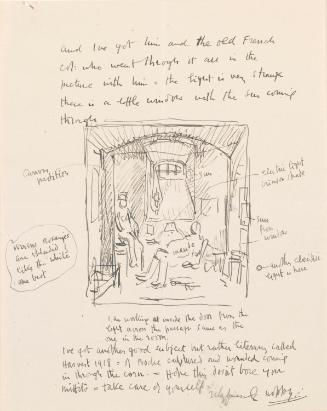 and I've got him and the old French
Col: who went through it are in the
picture with him = the light is very strange
there is a little window with the sun coming
through
Canvas
partition
sun
electric light
window shade
sun
from
window
another electric
light is here
are
rather the white
one best
I am working at inside the door from the
light across the passage same as the
one in the room.
I've got another good subject but rather literary called
Harvest 1918 = of Boche captured and wounded coming
in through the corn = Hope this doesn't bore you
= take care of yourself